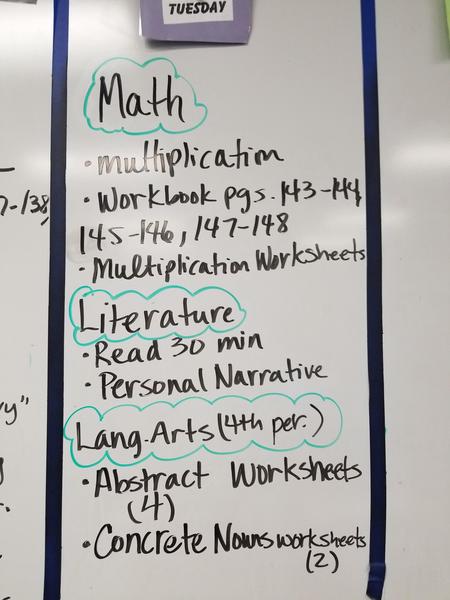 TUESDAY
Math
• multiplication
• Workbook pgs. 143-144
145-146, 147-148
• Multiplication Worksheets
Literature
• Read 30 min
• Personal Narrative
Lang. Arts (4th per.)
• Abstract Worksheets
(4)
• Concrete Nouns worksheets
(2)
7-138,
y"